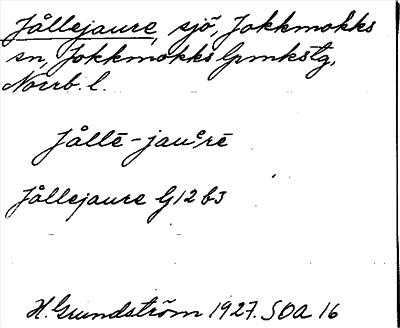 Jållejaure, sjö, Jokkmokks
sn, Jokkmokks lpmkstg,
Norrb. l.
Jållē-jauᵉrē
Jållejaure G12 b3
H. Grundström 1927. SOA 16